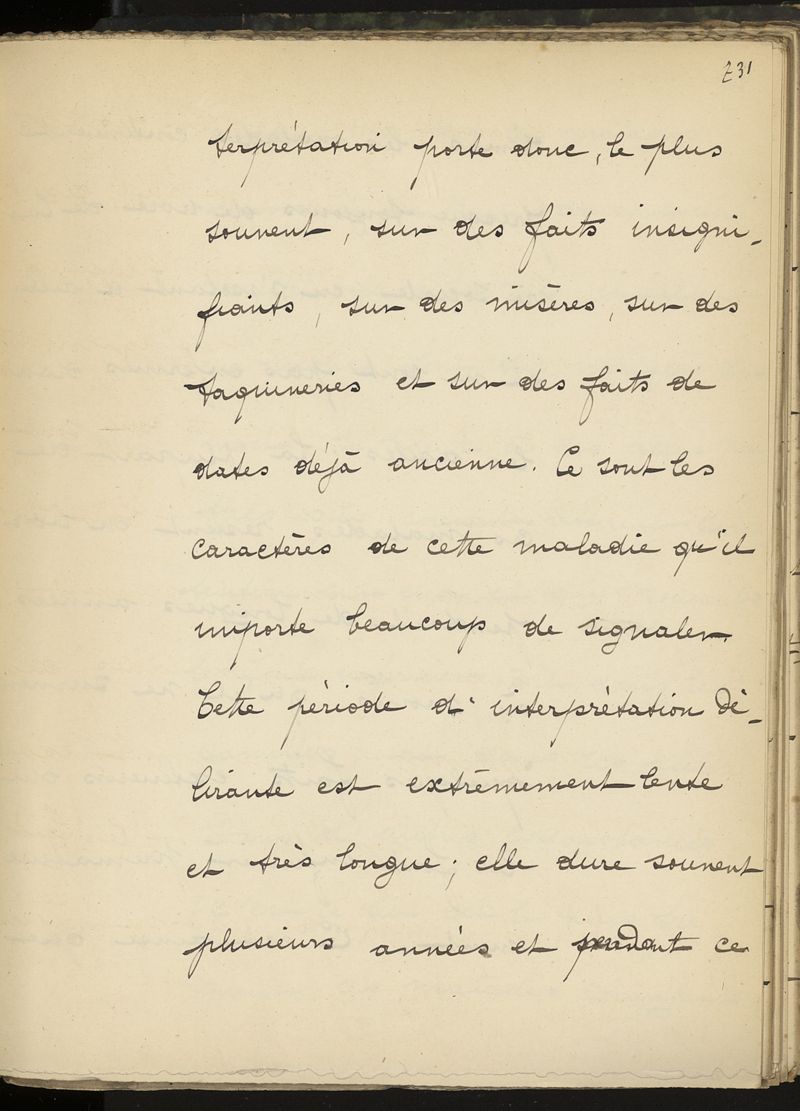 231
terprétation porte donc, le plus
souvent, sur des faits insigni-
fiants, sur des misères, sur des
taquineries et sur des faits de
dates déjà ancienne. Ce sont les
caractères de cette maladie qu'il
importe beaucoup de signaler.
Cette période d'interprétation dé-
lirante est extrêmement lente
et très longue ; elle dure souvent
plusieurs années et pendant ce